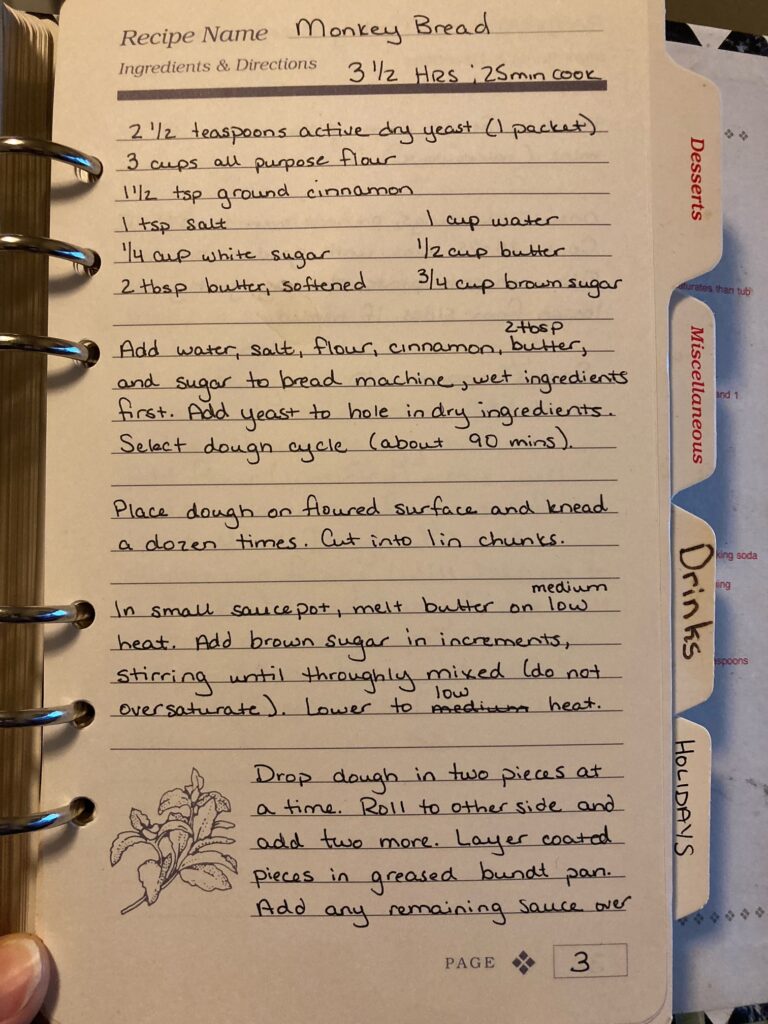 Recipe Name Monkey Bread
Ingredients & Directions 3 1/2 HRS ; 25min cook
2 1/2 teaspoons active dry yeast (1 packet)
3 cups all purpose flour
1 1/2 tsp ground cinnamon
1 tsp salt 1 cup water
1/4 cup white sugar 1/2 cup butter
2 tbsp butter, softened 3/4 cup brown sugar
2 tbsp
Add water, salt, flour, cinnamon, butter,
and sugar to bread machine, wet ingredients
first. Add yeast to hole in dry ingredients.
Select dough cycle (about 90 mins).
Place dough on floured surface and knead
a dozen times. Cut into 1in chunks.
medium
In small saucepot, melt butter on low
heat. Add brown sugar in increments,
stirring until throughly mixed (do not
low
oversaturate). Lower to medium heat.
Drop dough in two pieces at
a time. Roll to other side and
add two more. Layer coated
pieces in greased bundt pan.
Add any remaining sauce over
PAGE 3
Desserts
Miscellaneous
Drinks
HOLIDAYS
than tub
and 1
king soda
spoons